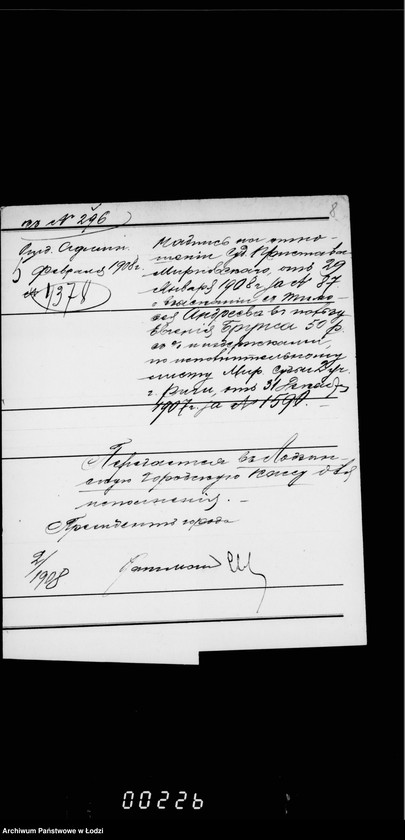 № 296
8
Февраля 1908 г.
№ 4378
Надпись на отно-
шении Суд. Пристава
отъ 29
Января 1908 г. за № 87
о взысканіи съ
Андреева въ пользу
Евгенія 50 р.
съ % и издержками,
по исполнительному
листу Мир. Судьи
г. Риги, отъ 31 Декабря
1907 г. за № 1590.
Передается въ Лодзин-
скую Городскую Кассу для
исполненія.
Президентъ города
2/
1908
00226
Archiwum Państwowe w Łodzi